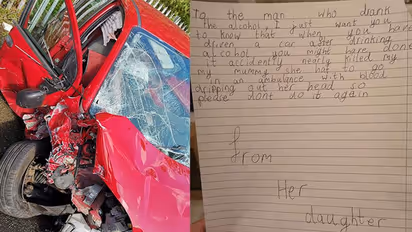 To the man who drank
the alcohol I just want you
to know that when you have
driven a car after drinking
alcohol you might have done
it accidently nearly killed my
my mummy she had to go
in an ambulance with blood
dripping out her head so
please dont do it again
From
Her
daughter